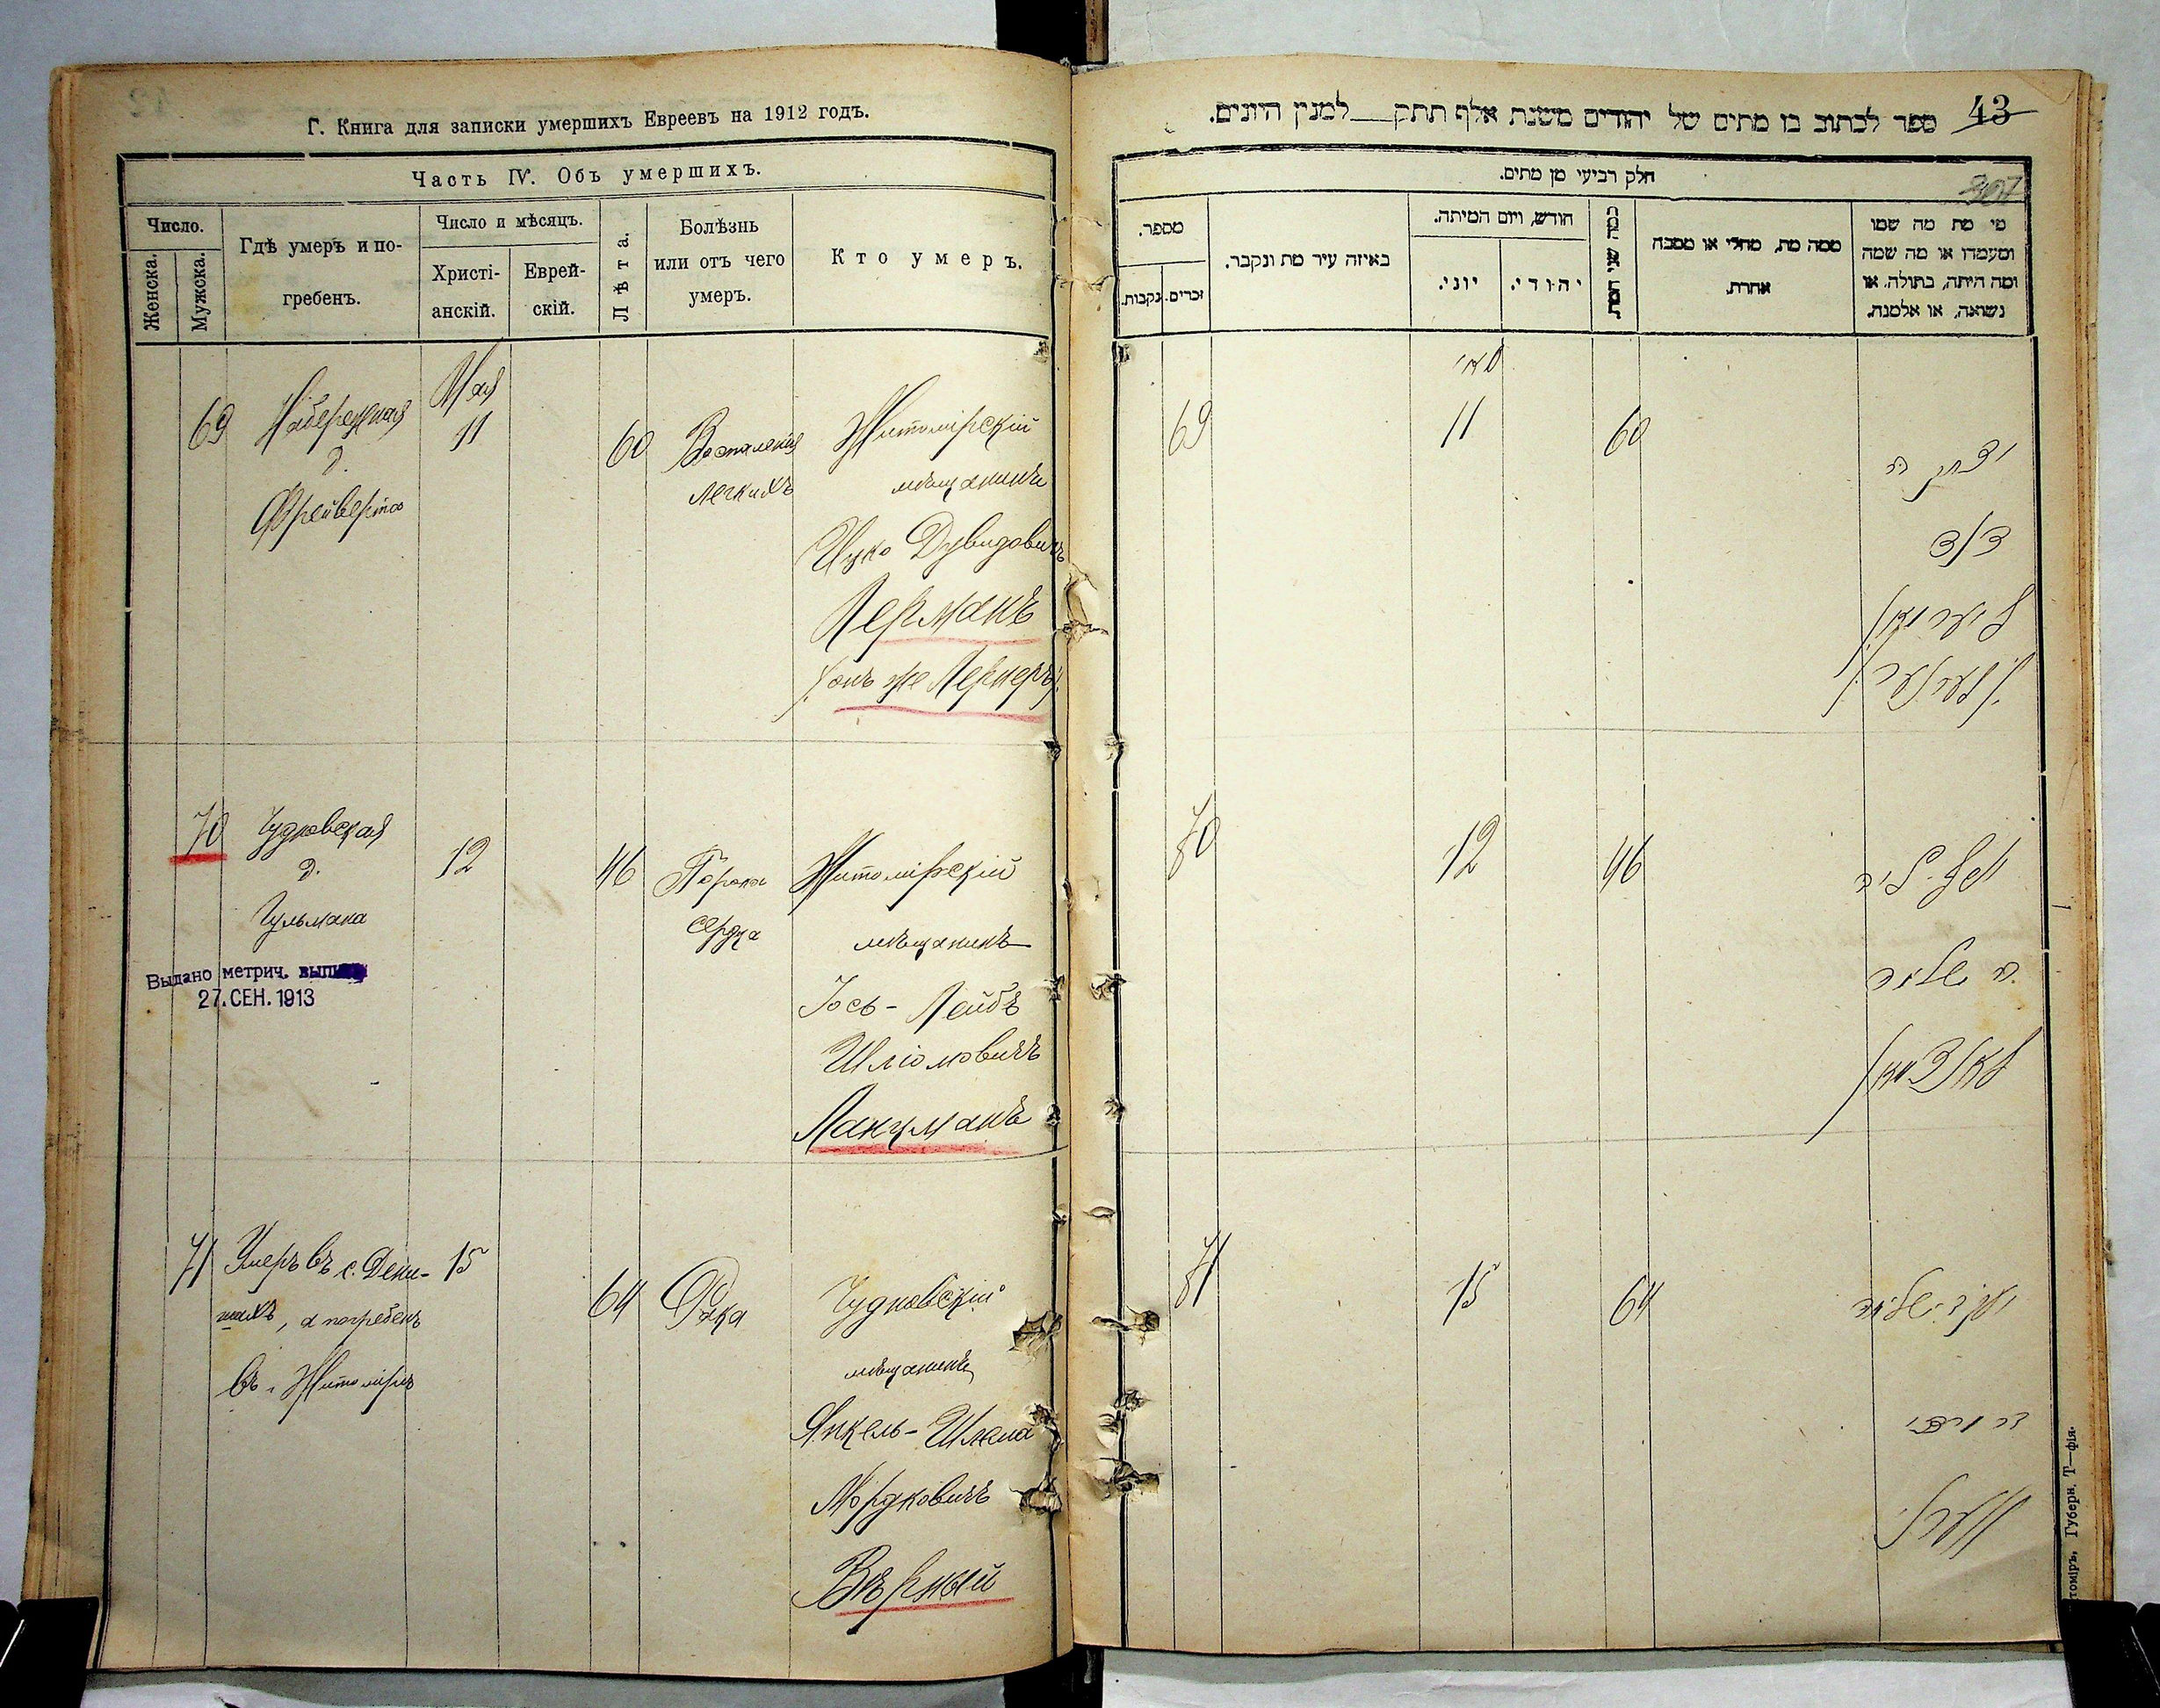 Г. Книга для записки умершихъ Евреевъ на 1912 годъ.
Часть IV. Объ умершихъ.
Число.
Женска.
Мужска.
Гдѣ умеръ и по-
гребенъ.
Число и мѣсяцъ.
Христі-
анскій.
Еврей-
скій.
Лѣта.
Болѣзнь
или отъ чего
умеръ.
Кто умеръ.
69
Набережная
д.
Мая
11
60
Воспаленіе
легкихъ
Житомірскій
мѣщанинъ
Ицко Дувидовичъ
Лерманъ
(онъ же Лернеръ).
70
Чудновская
д.
Гульмана
12
46
Порокъ
сердца
Житомірскій
мѣщанинъ
Іось-Лейбъ
Шліомовичъ
Ланцманъ
Выдано метрич.
27. СЕН. 1913
71
Умеръ въ с. Дени-
шахъ, а погребенъ
въ г. Житомірѣ
15
64
Рака
Чудновскій
мѣщанинъ
Янкель-Шлема
Мордковичъ
Вѣрный
43
ספר לכתוב בו מתים של יהודים משנת אלף תתק למנין היונים.
חלק רביעי מן מתים.
מספר.
נקבות.
זכרים.
באיזה עיר מת ונקבר.
חודש, ויום המיתה.
יוני.
יהודי.
כמה שני המת.
ממה מת, מחלי או מסבה
אחרת.
מי מת מה שמו
ומעמדו או מה שמה
ומה היתה, בתולה, או
נשואה, או אלמנה.
מאי
69
11
60
יצחק ב״ר
דוד
לערמאן
70
12
46
יוסל ליב
ב״ר שלמה
לאנצמאן
71
15
64
יעקב שלמה
ב״ר מרדכי
томіръ, Губерн. Т—фія.